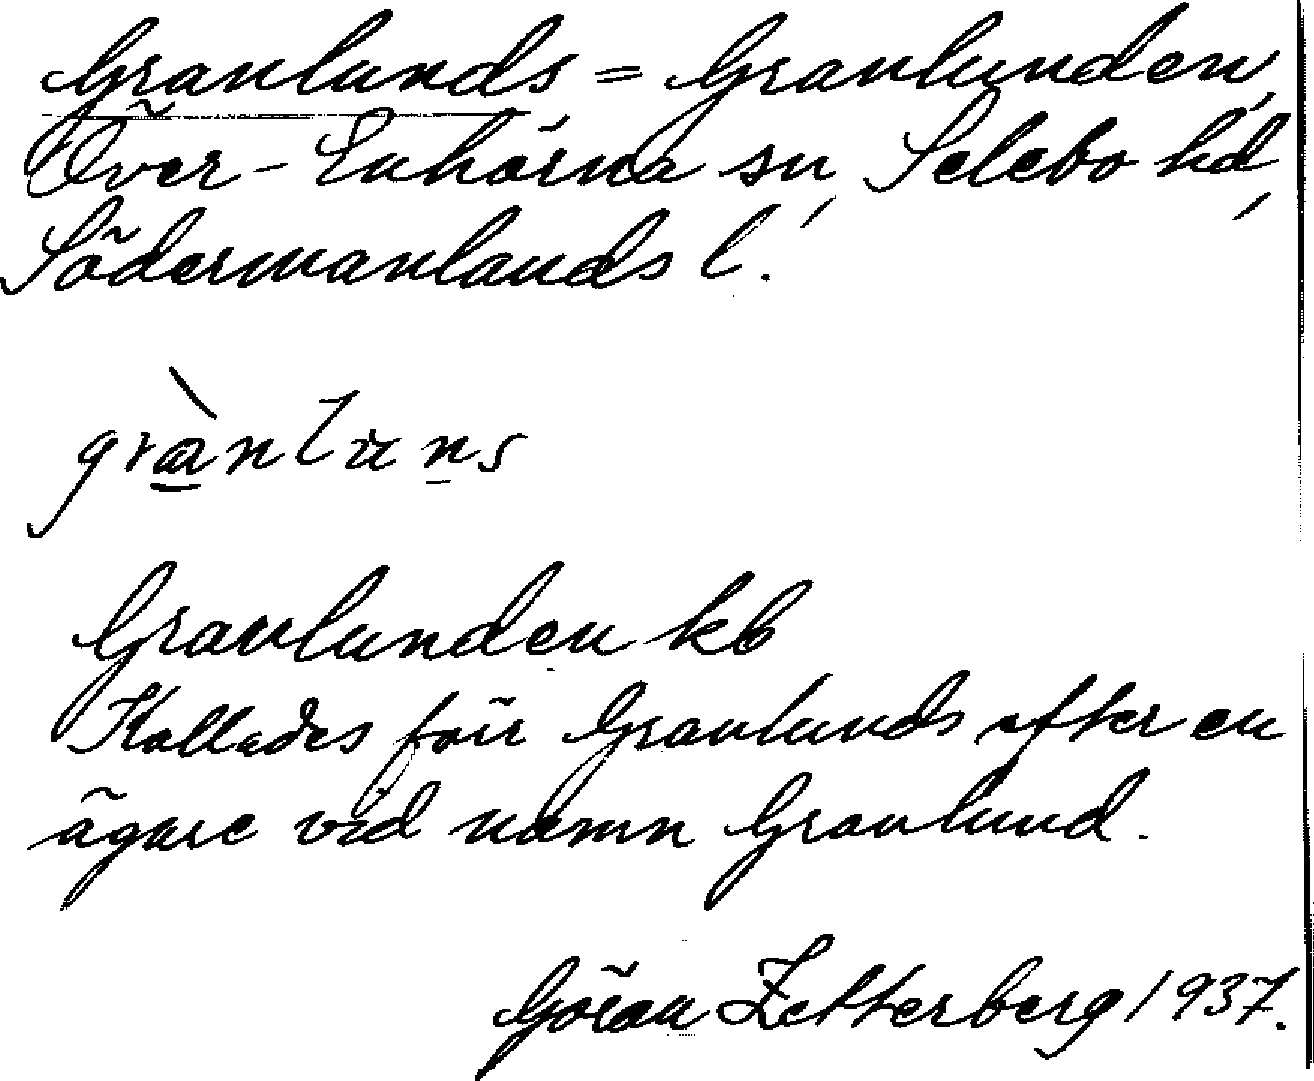 Granlunds = Granlunden,
Över-Enhörna sn, Selebo hd,
Södermanlands l.
grànluns
Granlunden kb
Kallades förr Granlunds efter en
ägare vid namn Granlund.
Göran Zetterberg 1937.